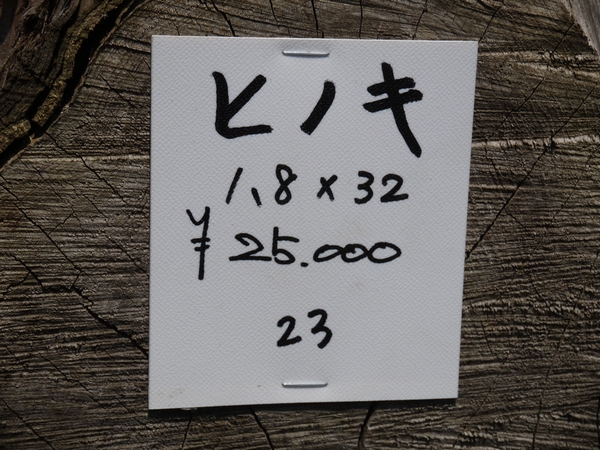 ヒノキ
1.8×32
¥25.000
23